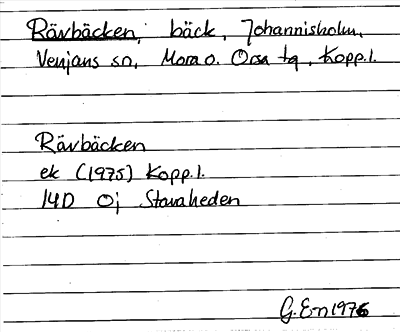 Rävbäcken, bäck, Johannisholm,
Venjans sn, Mora o. Orsa tg, Kopp.l.
Rävbäcken
ek (1975) Kopp.l.
14D 0j Stavaheden
G.En 1976